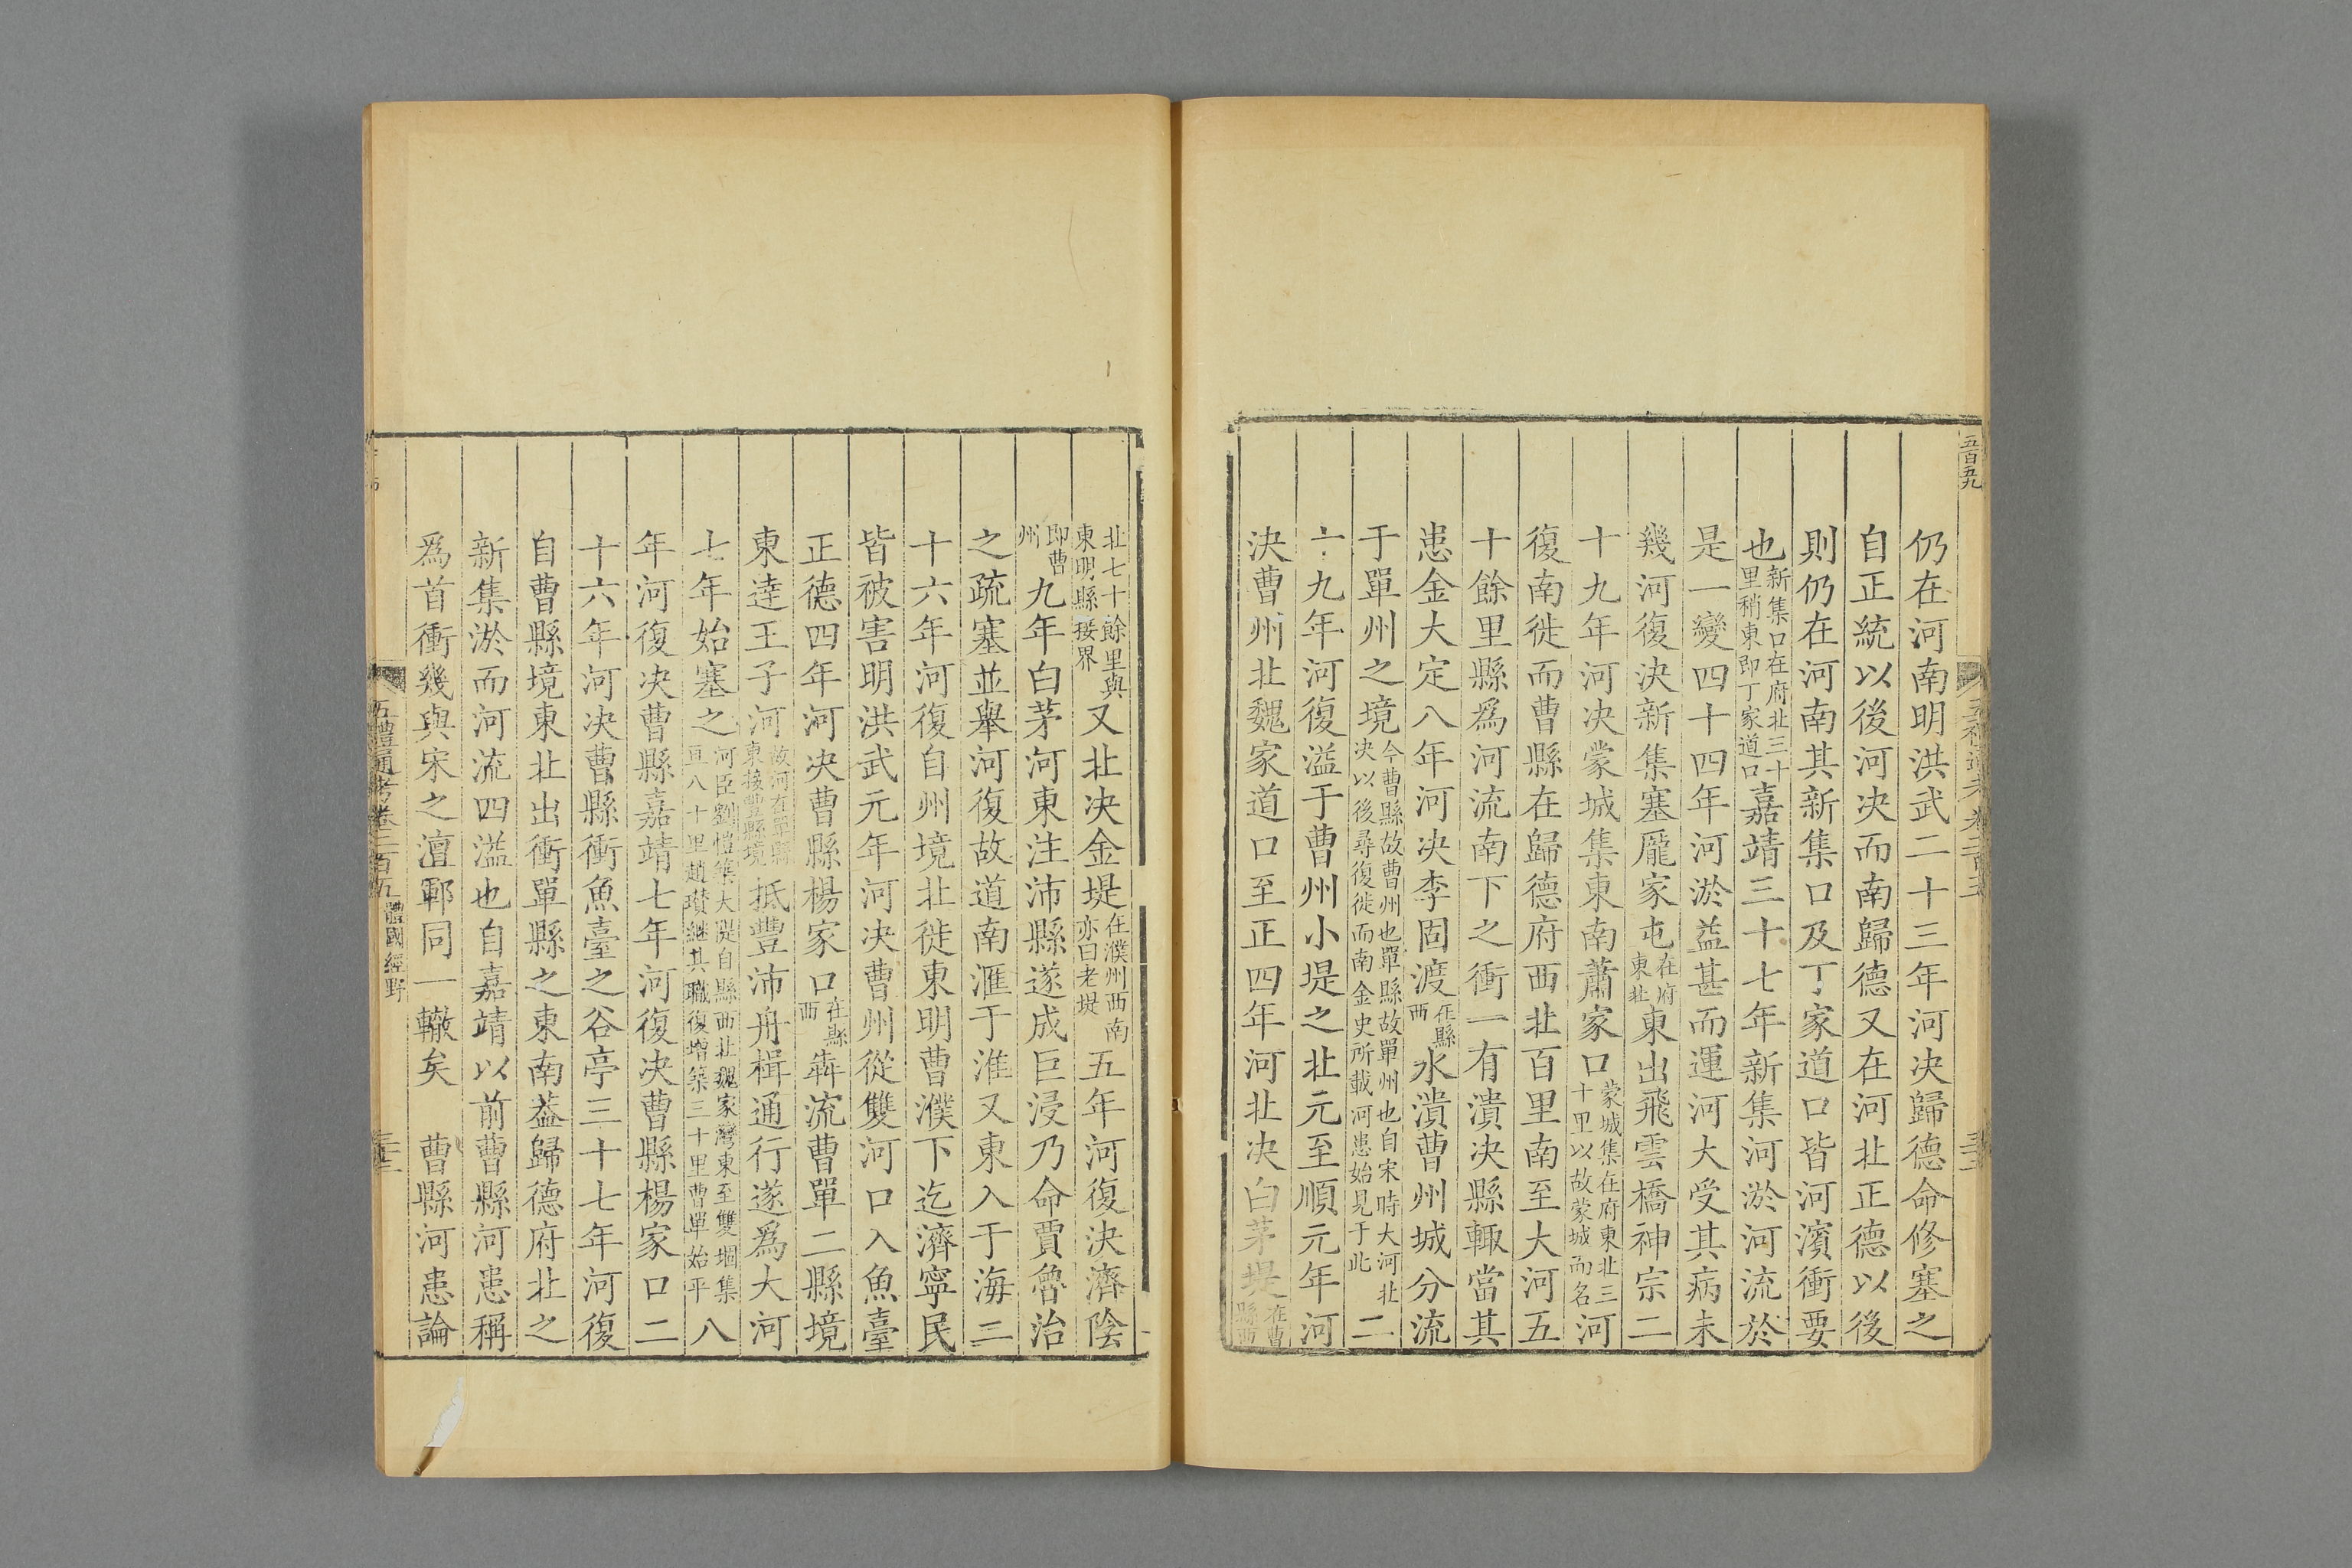 五百五九
仍在河南明洪武二十三年河決歸德命修塞之
自正統以後河决而南歸德又在河北正德以後
則仍在河南其新集口及丁家道口皆河濱衝要
也新集口在府北三十里稍東即丁家道口嘉靖三十七年新集河淤河流於
是一變四十四年河淤益甚而運河大受其病未
幾河復決新集塞龎家屯在府東北東出飛雲橋神宗二
十九年河決蒙城集東南蕭家口蒙城集在府東北三十里以故蒙城而名河
復南徙而曹縣在歸德府西北百里南至大河五
十餘里縣爲河流南下之衝一有潰决縣輙當其
患金大定八年河決李固渡在縣西水潰曹州城分流
于單州之境今曹縣故曹州也單縣故單州也自宋時大河北决以後尋復徙而南金史所載河患始見于此二
十九年河復溢于曹州小堤之北元至順元年河
決曹州北魏家道口至正四年河北决白茅堤在曹縣西
北七十餘里與東明縣接界又北決金堤在濮州西南亦曰老堤五年河復決濟陰
即曹州九年白茅河東注沛縣遂成巨浸乃命賈魯治
之疏塞並舉河復故道南滙于淮又東入于海二
十六年河復自州境北徙東明曹濮下迄濟寧民
皆被害明洪武元年河决曹州從雙河口入魚臺
正德四年河决曹縣楊家口在縣西犇流曹單二縣境
東逹王子河故河在單縣東接豐縣境抵豐沛舟楫通行遂爲大河
七年始塞之河臣劉愷築大隄自縣西北魏家灣東至雙堌集亘八十里趙璜繼其職復增築三十里曹單始平八
年河復决曹縣嘉靖七年河復决曹縣楊家口二
十六年河决曹縣衝魚臺之谷亭三十七年河復
自曹縣境東北出衝單縣之東南葢歸德府北之
新集淤而河流四溢也自嘉靖以前曹縣河患稱
爲首衝幾與宋之澶鄆同一轍矣　曹縣河患論
五禮通考卷二百五 體國經野